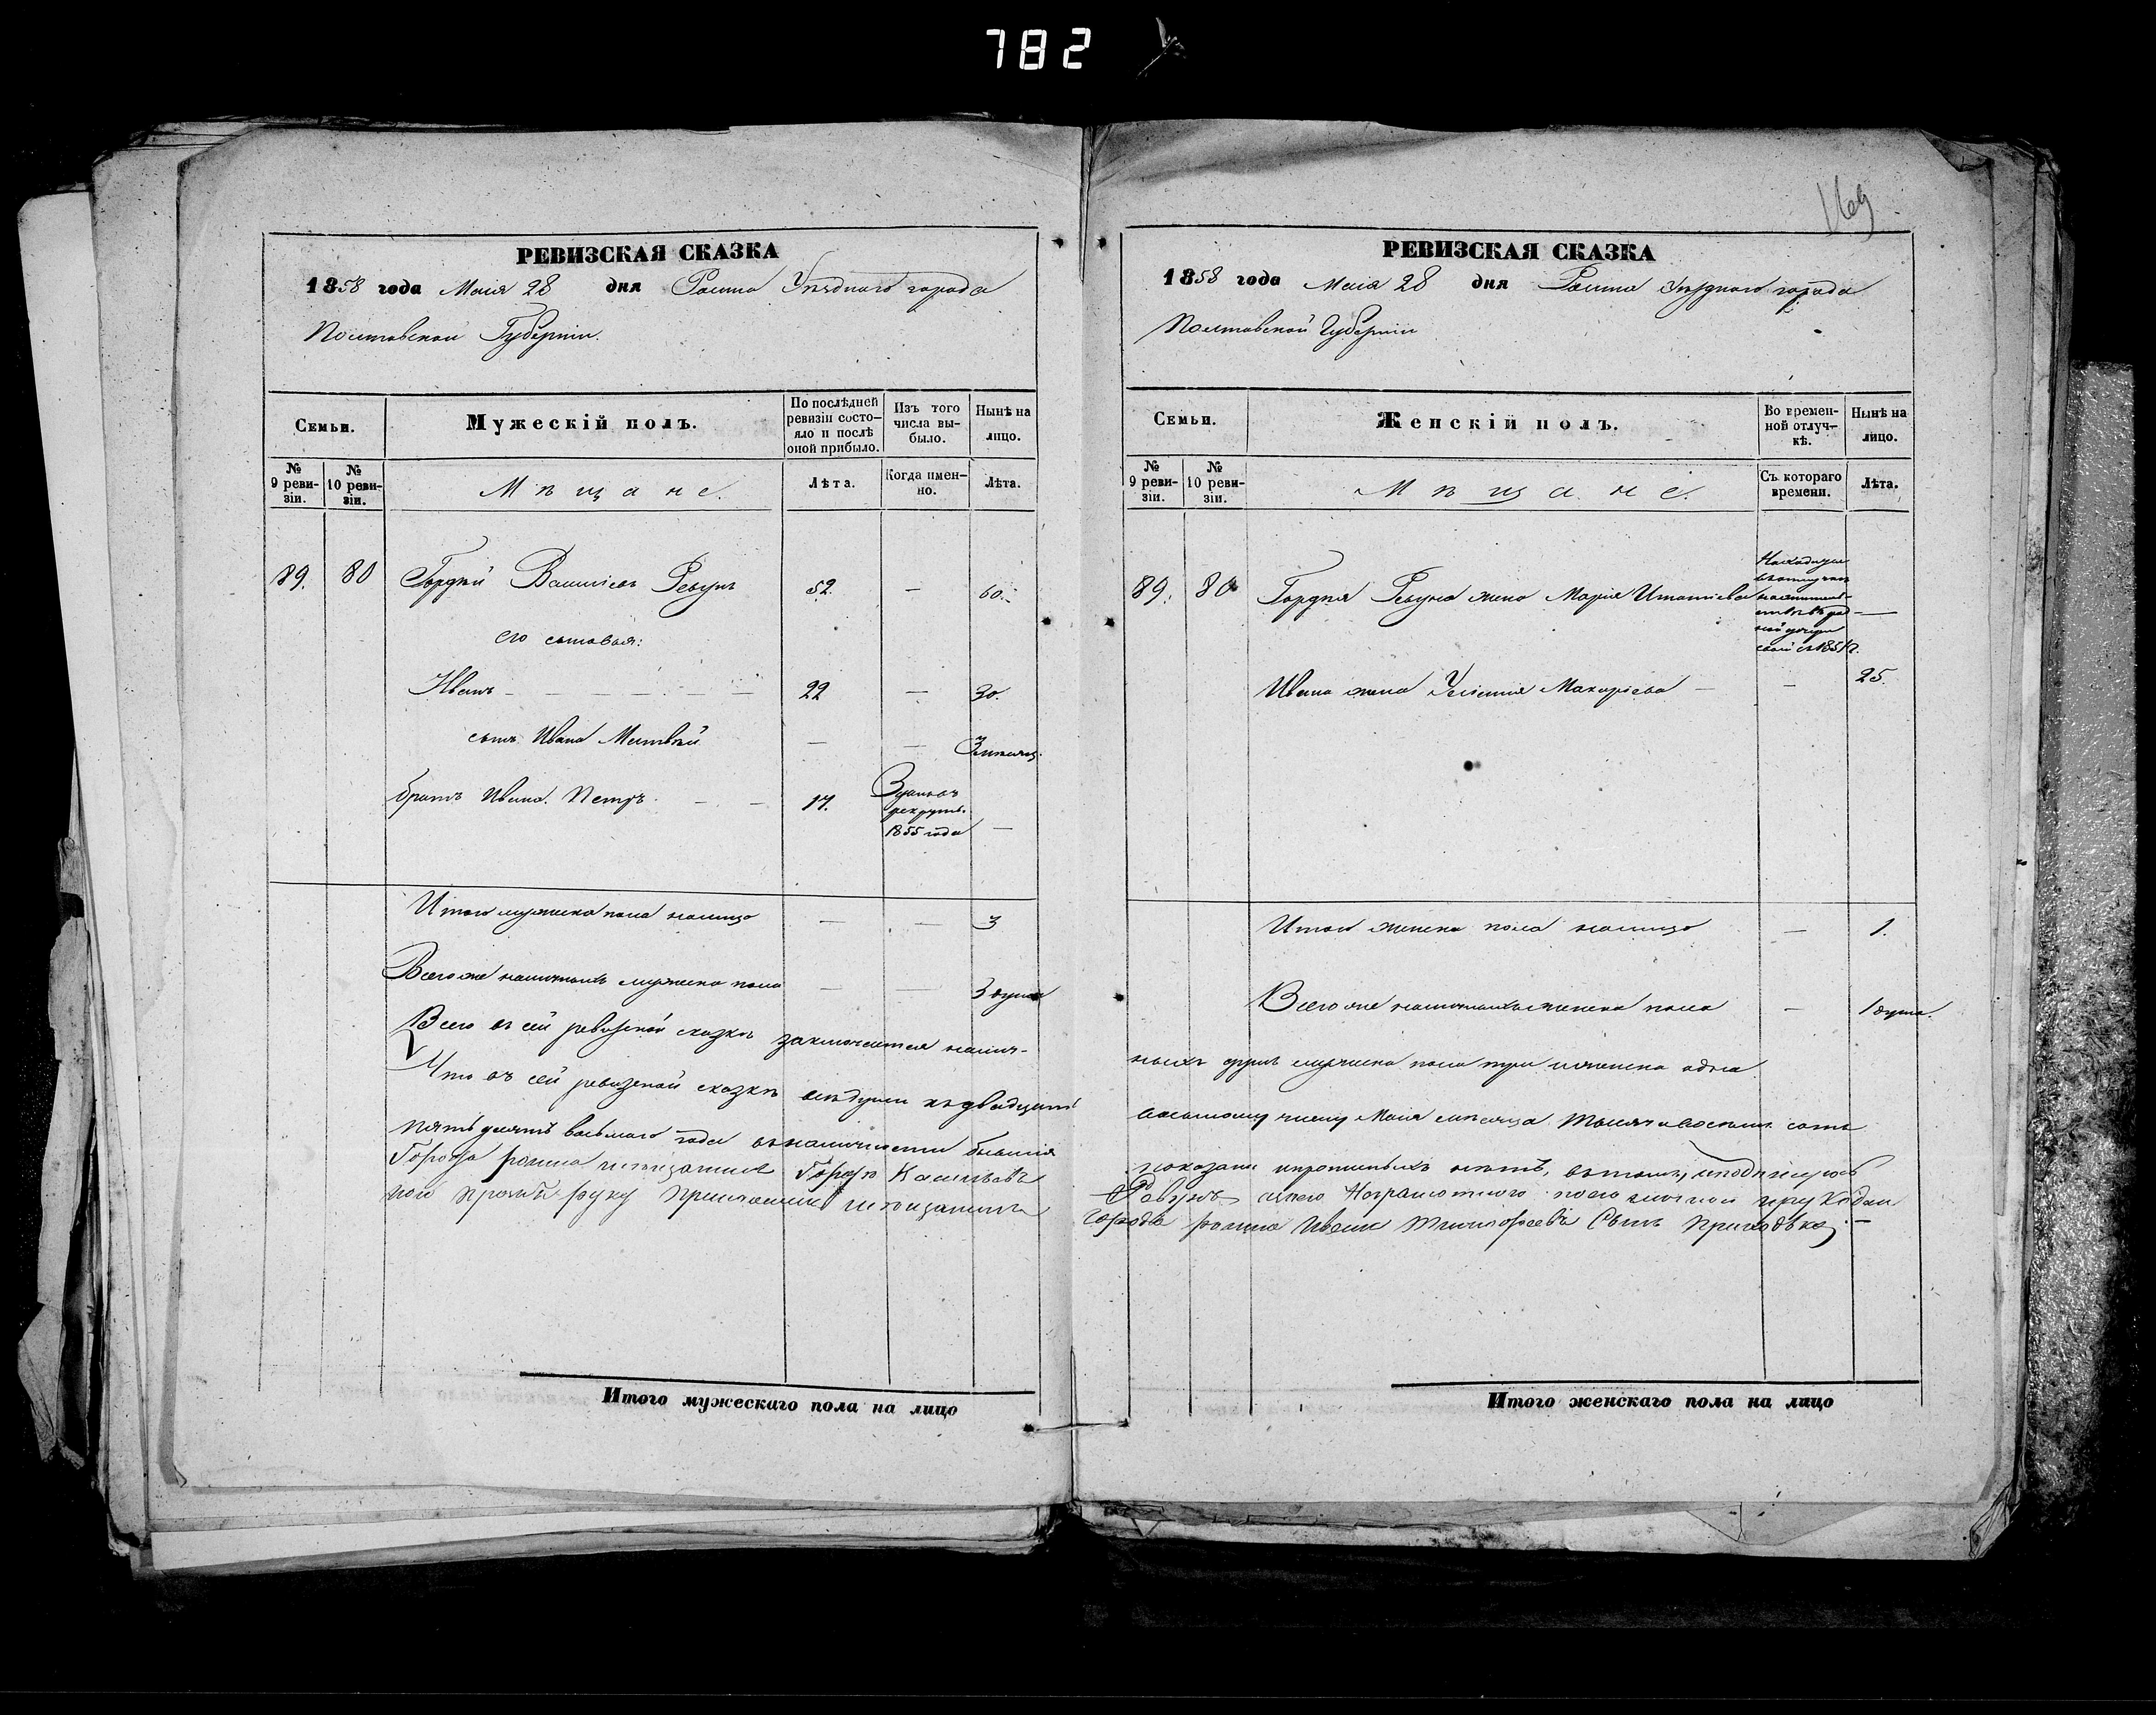 782
169
РЕВИЗСКАЯ СКАЗКА
1858 года Маія 28 дня Ромна Уѣзднаго города
Полтавской Губерніи.
Семьи.
Мужескій полъ.
По послѣдней ревизіи состояло и послѣ оной прибыло.
Изъ того числа выбыло.
Нынѣ на лицо.
№ 9 ревизіи.
№ 10 ревизіи.
Мѣщане.
Лѣта.
Когда именно.
Лѣта.
89. 80 Гордѣй Василіевъ Ревунъ 52. — 60.
его сыновья:
Иванъ — 22 — 30.
сынъ Ивана Матвѣй — —
братъ Ивана Петръ — 17.
рекруты
1855 года —
Итого мужеска пола налицо — — 3
Всего же наличныхъ мужеска пола — — 3 души
Всего въ сей ревизской сказкѣ заключается налич-
Что въ сей ревизской сказкѣ всѣ души къ двадцать
пятьдесятъ восьмого года въ наличности бывшія
Города ромна
Итого мужескаго пола на лицо
РЕВИЗСКАЯ СКАЗКА
1858 года Маія 28 дня Ромна Уѣзднаго города
Полтавской Губерніи
Семьи.
Женскій полъ.
Во временной отлучкѣ.
Нынѣ на лицо.
№ 9 ревизіи.
№ 10 ревизіи.
Мѣщане.
Съ котораго времени.
Лѣта.
89. 80 Гордѣя Ревуна жена Марія Игнатіева —
Ивана жена Макаріева — — 25.
Итого женска пола налицо — 1.
Всего же наличныхъ женска пола — 1 душа.
ныхъ душъ мужеска пола три и женска одна
восьмому числу Маія мѣсяца тысяча восемь сотъ
показаны и пропущенныхъ нѣтъ, въ томъ подписуюсь
Ревунъ а вмѣсто его Неграмотного по его личной
города ромна Иванъ Тимофеевъ Сынъ Приходько —
Итого женскаго пола на лицо